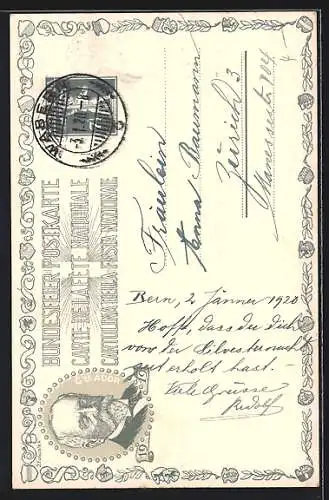 BUNDESFEIER-POSTKARTE
CARTE DE LA FÊTE NATIONALE
CARTOLINA DELLA FESTA NAZIONALE
WABERN
Fräulein
Anna Baumann
Zürich 3
104
Bern, 2 Jänner 1920
Hoffe, dass du dich
von der Silvesternacht
gut erholt hast.
Viele Grüsse
Rudolf
G. ADOR
19